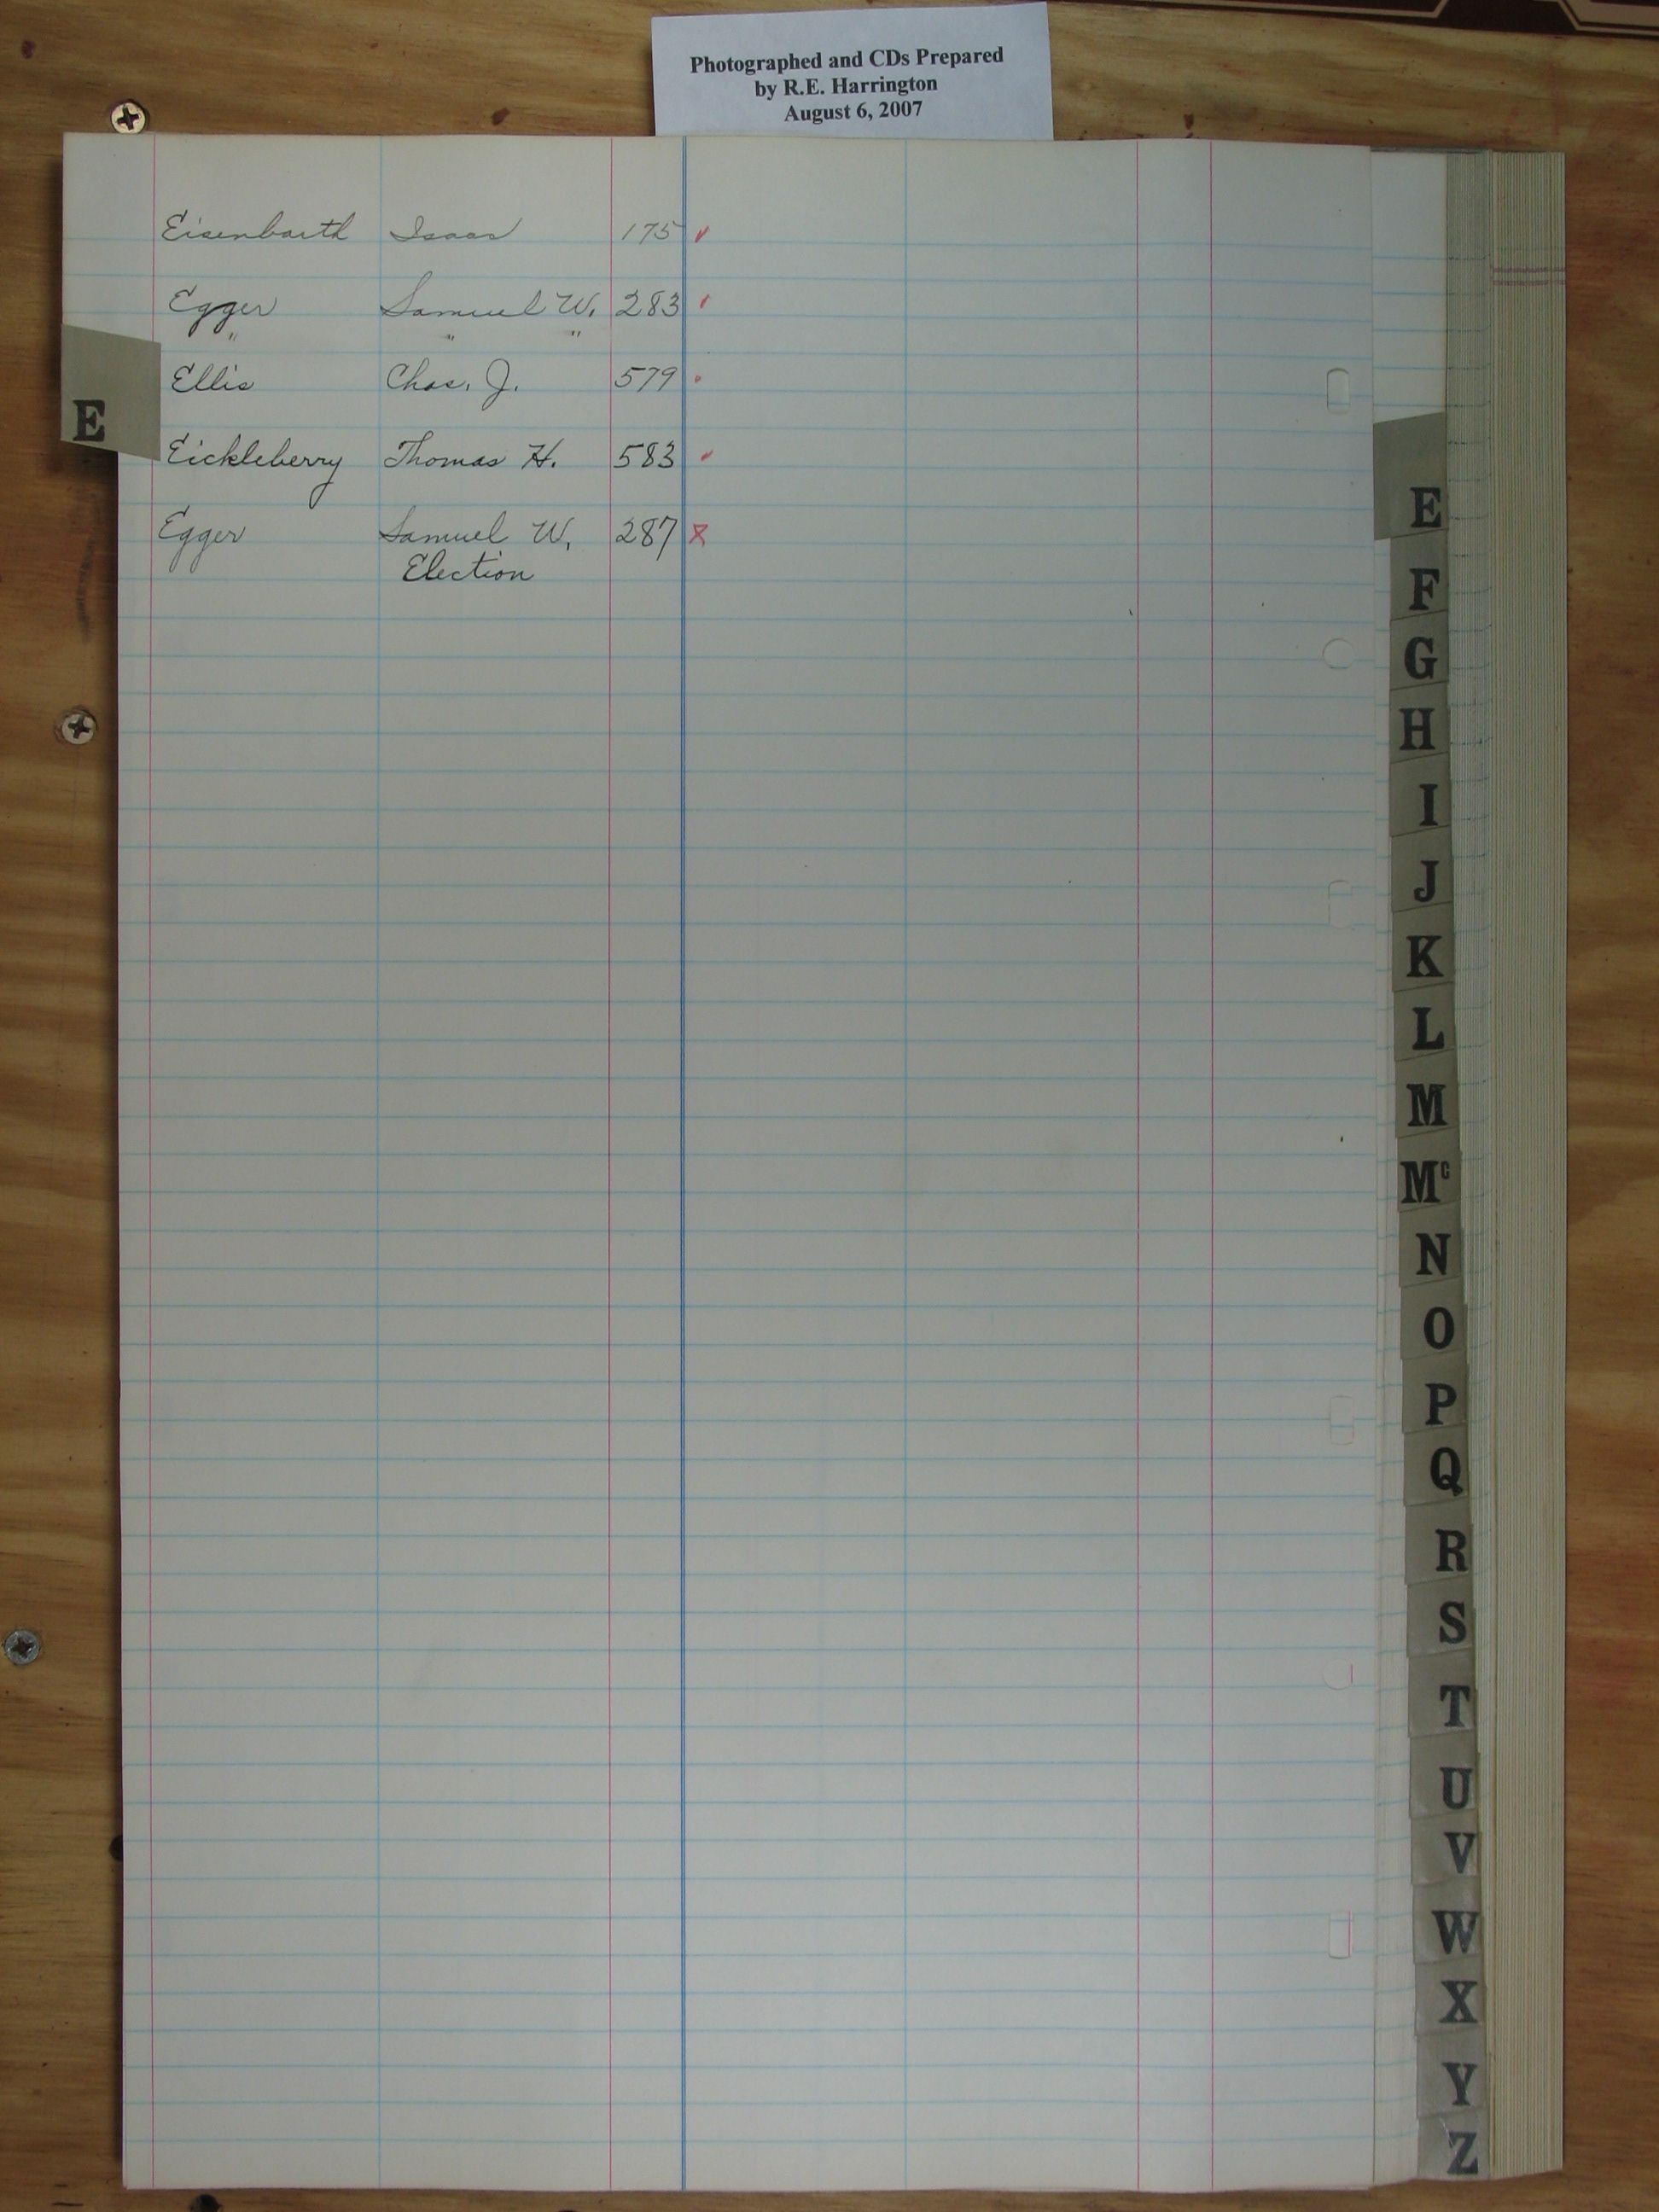 Photographed and CDs Prepared
by R.E. Harrington
August 6, 2007
Eisenbarth Isaac 175
Egger Samuel W. 283
" " "
Ellis Chas. J. 579
E
Eickleberry Thomas H. 583
Egger Samuel W. 287
Election
E
F
G
H
I
J
K
L
M
Mc
N
O
P
Q
R
S
T
U
V
W
X
Y
Z